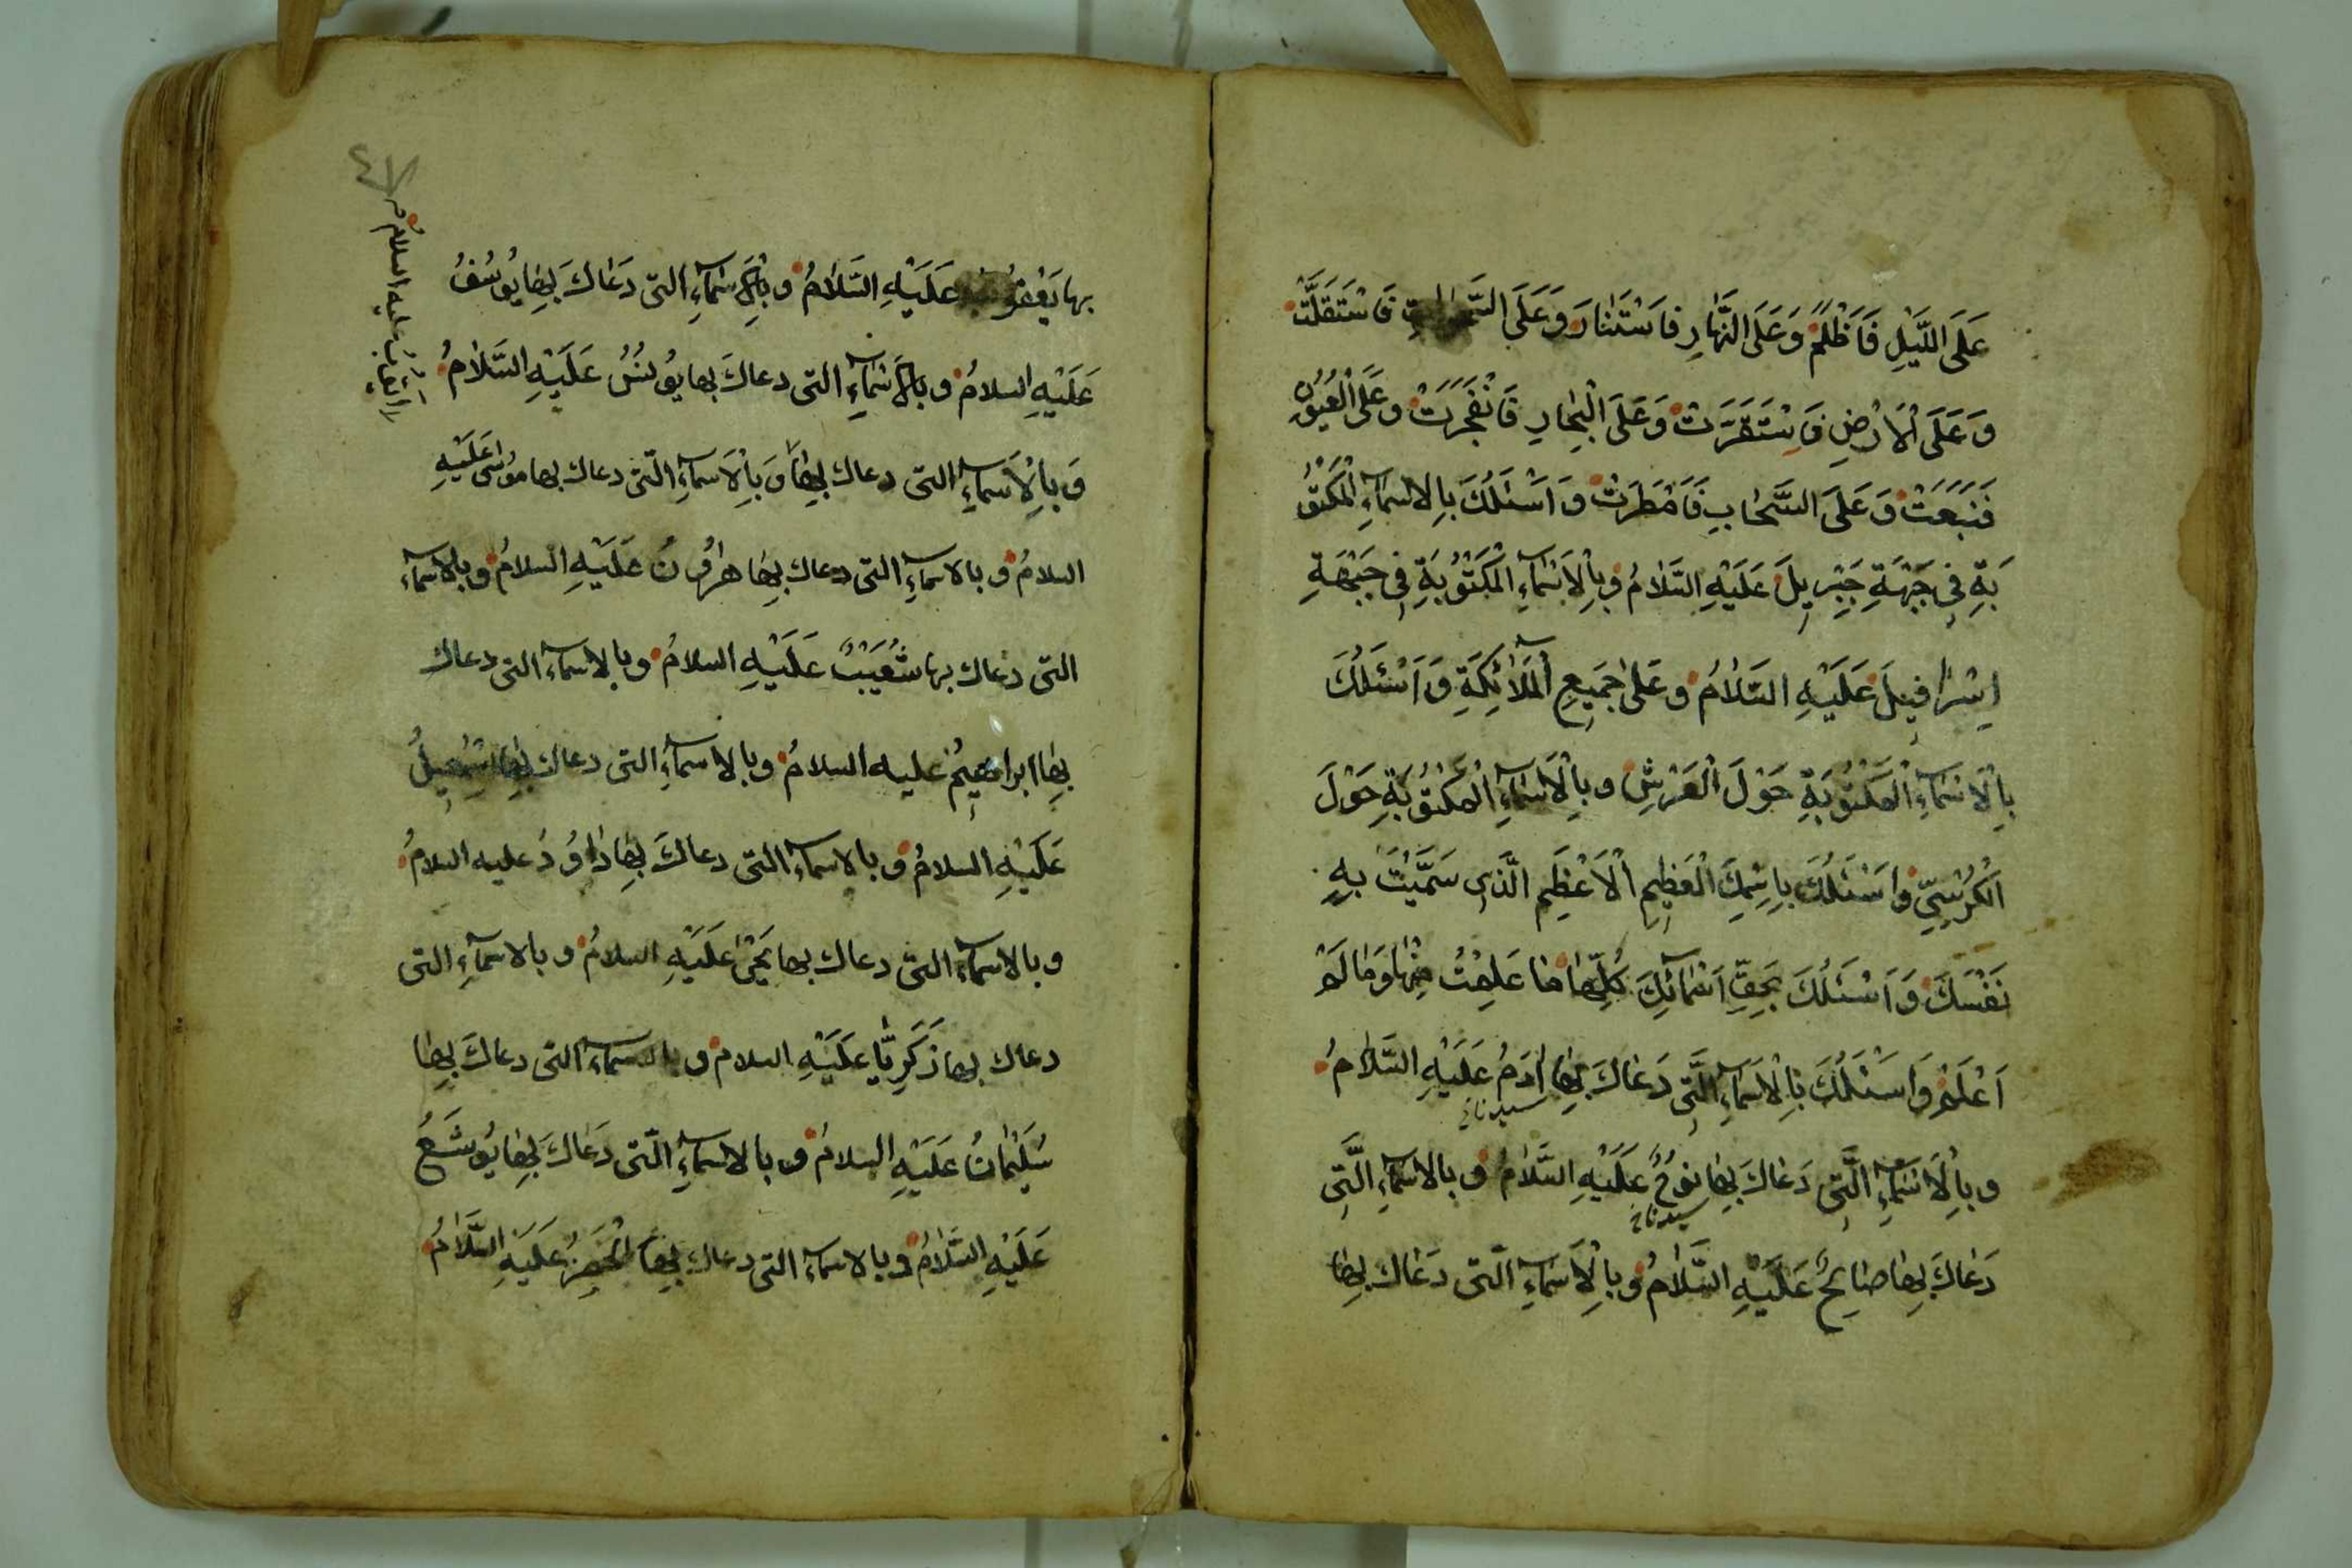 عَلَى اللَّيْلِ فَاَظْلَمَ وَعَلَى النَّهَارِ فَاسْتَنَارَ وَعَلَى السَّمَوَاتِ فَاسْتَقَلَّتْ
وَعَلَى الْاَرْضِ فَاسْتَقَرَّتْ وَعَلَى الْبِحَارِ فَانْفَجَرَتْ وَعَلَى الْعُيُوْنِ
فَنَبَعَتْ وَعَلَى السَّحَابِ فَاَمْطَرَتْ وَاَسْئَلُكَ بِالاَسْمَآءِ الْمَكْتُوْ
بَةِ فِى جَبْهَةِ جِبْرِيلَ عَلَيْهِ السَّلَامُ وَبِالْاَسْمَآءِ الْمَكْتُوْبَةِ فِى جَبْهَةِ
اِسْرَافِيلَ عَلَيْهِ السَّلَامُ وَعَلَى جَمِيعِ الْمَلَآئِكَةِ وَاَسْئَلُكَ
بِالْاَسْمَآءِ الْمَكْتُوْبَةِ حَوْلَ الْعَرْشِ وَبِالْاَسْمَآءِ الْمَكْتُوْبَةِ حَوْلَ
الْكُرْسِيِّ وَاَسْئَلُكَ بِاِسْمِكَ الْعَظِيمِ الْاَعْظَمِ الَّذِى سَمَّيْتَ بِهِ
نَفْسَكَ وَاَسْئَلُكَ بِحَقِّ اَسْمَآئِكَ كُلِّهَا مَا عَلِمْتُ مِنْهَا وَمَا لَمْ
اَعْلَمْ وَاَسْئَلُكَ بِالْاَسْمَآءِ الَّتِى دَعَاكَ بِهَا اٰدَمُ عَلَيْهِ السَّلَامُ
سيدنا
وَبِالْاَسْمَآءِ الَّتِى دَعَاكَ بِهَا نُوْحٌ عَلَيْهِ السَّلَامُ وَبِالاسْمَآءِ الَّتِى
سيدنا
دَعَاكَ بِهَا صَالِحٌ عَلَيْهِ السَّلَامُ وَبِالْاَسْمَآءِ الَّتِى دَعَاكَ بِهَا
٤٧
بها يَعْقُوْبُ عَلَيْهِ السَّلَامُ وَبِالْاَسْمَآءِ الَّتِى دَعَاكَ بِهَا يُوْسُفُ
عَلَيْهِ السلامُ وبالاَسْمَآءِ التى دعاكَ بها يُوْنُسُ عَلَيْهِ السَّلَامُ
وَبِالْاَسْمَآءِ التى دعاك بِهَا وَبِالْاَسْمَآءِ الَّتى دعاك بها مُوْسَى عَلَيْهِ
السلامُ وبالاسمآءِ التى دعاك بِهَا هَارُوْنُ عَلَيْهِ السلامُ وبالاسمآء
التى دعاك بها شُعَيْبٌ عَلَيْهِ السلامُ وبالاسمآء التى دعاك
بِهَا ابراهيمُ عليه السلامُ وبالاسمآءِ التى دعاك بِهَا اِسْمَعِيلُ
عَلَيْهِ السلامُ وبالاسمآء التى دعاكَ بِهَا دَاوُدُ عليه السلامُ
وبالاسمآء التى دعاك بها يَحْيَى عَلَيْهِ السلامُ وبالاسمآءِ التى
دعاك بها زَكَرِيَّا عَلَيْهِ السلام وبالاسمآء التى دعاكَ بِهَا
سُلَيْمَانُ عَلَيْهِ السلامُ وبالاسمآءِ الَّتى دَعَاكَ بِهَا يُوْشَعُ
عَلَيْهِ السَّلَامُ وبالاسمآء التى دعاك بِهَا الْخَضِرُ عَلَيْهِ السَّلَامُ
عليه السلامُ